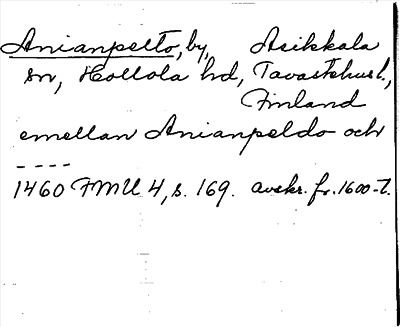 Anianpelto, by, Asikkala
sn, Hollola hd, Tavastehus l.,
Finland
emellan Anianpeldo och
----
1460 FMU 4, s. 169. avskr. fr. 1600-t.